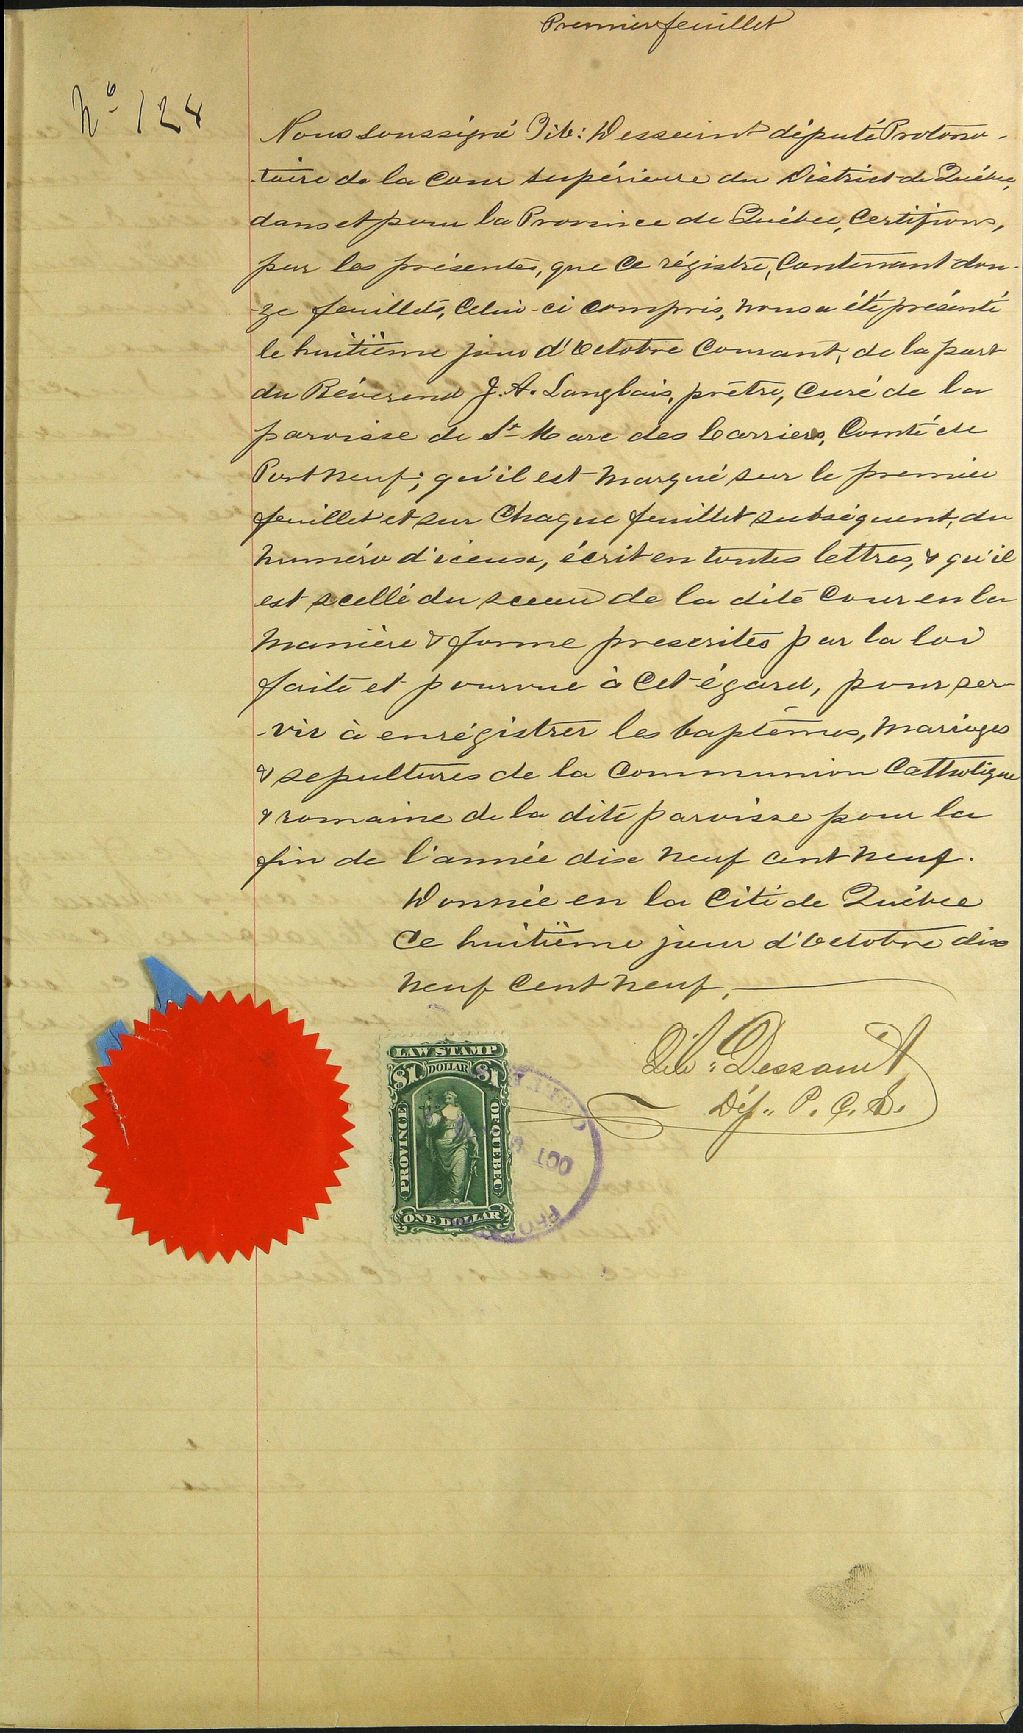 Premier feuillet
No 124
Nous soussigné Tib: Dessaint député Protono-
-taire de la Cour supérieure du District de Québec,
dans et pour la Province de Québec, Certifions,
par les présentes, que ce régistre, Contenant dou-
ze feuillets, Celui-ci compris, nous a été présenté
le huitième jour d'Octobre Courant, de la part
du Révérend J. A. Langlais, prêtre, Curé de la
paroisse de St Marc des Carrières, Comté de
Portneuf; qu'il est marqué sur le premier
feuillet et sur Chaque feuillet subséquent, du
numéro d'iceux, écrit en toutes lettres, & qu'il
est scellé du sceau de la dite Cour en la
manière & forme prescrites par la loi
faite et pourvue à Cet égard, pour ser-
-vir à enrégistrer les baptêmes, mariages
& sepultures de la Communion Catholique
& romaine de la dite paroisse pour la
fin de l'année dix neuf cent neuf.
Donnée en la Cité de Québec
Ce huitième jour d'Octobre dix
neuf Cent neuf.
Tib: Dessaint
Dép. P. C. S.
LAW STAMP
$1 DOLLAR $1
PROVINCE OF QUEBEC
ONE DOLLAR
OCT 8